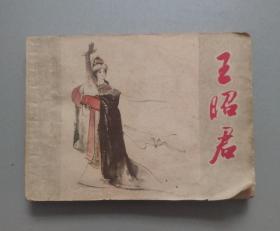 王昭君